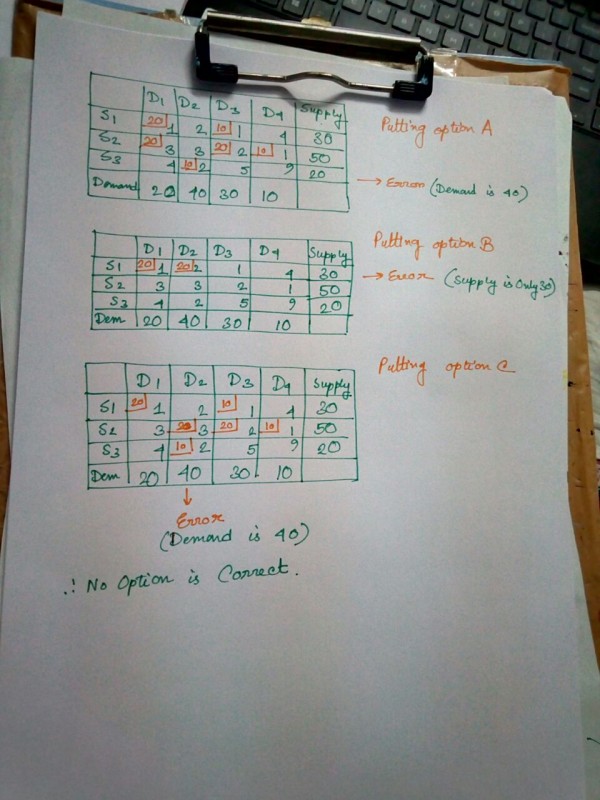 D1 D2 D3 D4 Supply
S1 20 1 2 10 1 4 30
S2 20 3 3 20 2 10 1 50
S3 4 10 2 5 9 20
Demand 20 40 30 10
Putting option A
→ Error (Demand is 40)
D1 D2 D3 D4 Supply
S1 20 1 20 2 1 4 30
S2 3 3 2 1 50
S3 4 2 5 9 20
Dem 20 40 30 10
Putting option B
→ Error (Supply is Only 30)
D1 D2 D3 D4 Supply
S1 20 1 2 10 1 4 30
S2 3 20 3 20 2 10 1 50
S3 4 10 2 5 9 20
Dem 20 40 30 10
Putting option C
↓
Error
(Demand is 40)
∴ No Option is Correct.